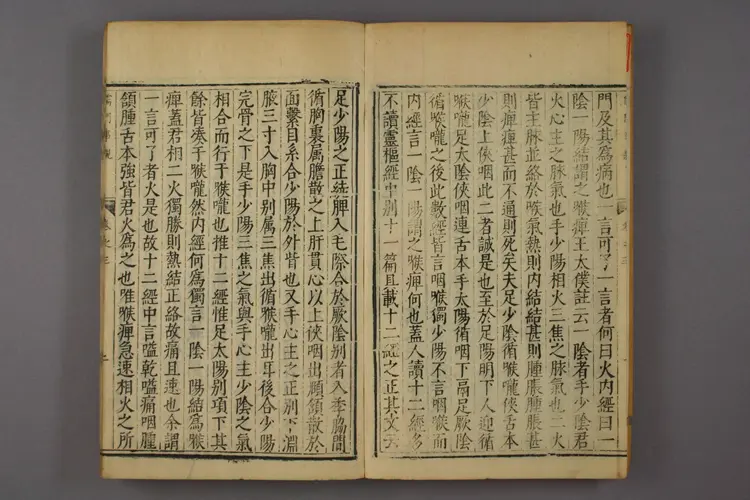 門及其為病也一言可了一言者何曰火內經曰一
陰一陽結謂之喉痺王太僕註云一陰者手少陰君
火心主之脉氣也手少陽相火三焦之脉氣也二火
皆主脉並絡於喉氣熱則内結結甚則腫脹腫脹甚
則痺痺甚而不通則死矣夫足少陰循喉嚨俠舌本
少陰上俠咽此二者誠是也至於足陽明下人迎循
喉嚨足太陰俠咽連舌本手太陽循咽下鬲足厥陰
循喉嚨之後此數經皆言咽喉獨少陽不言咽喉而
内經言一陰一陽謂之喉痺何也蓋人讀十二經多
不讀靈樞經中别十一篇且載十二經之正其文云
足少陽之正繞髀入毛際合於厥陰别者入季脇間
循胸裏属膽散之上肝貫心以上俠咽出頤頷散於
面繫目系合少陽於外眥也又手心主之正别下淵
腋三寸入胸中别属三焦出循喉嚨出耳後合少陽
完骨之下是手少陽三焦之氣與手心主少陰之氣
相合而行于喉嚨也推十二經惟足太陽别項下其
餘皆凑于喉嚨然内經何為獨言一陰一陽結為喉
痺蓋君相二火獨勝則熱結正絡故痛且速也余謂
一言可了者火是也故十二經中言嗌乾嗌痛咽腫
頷腫舌本強皆君火為之也唯喉痺急速相火之所